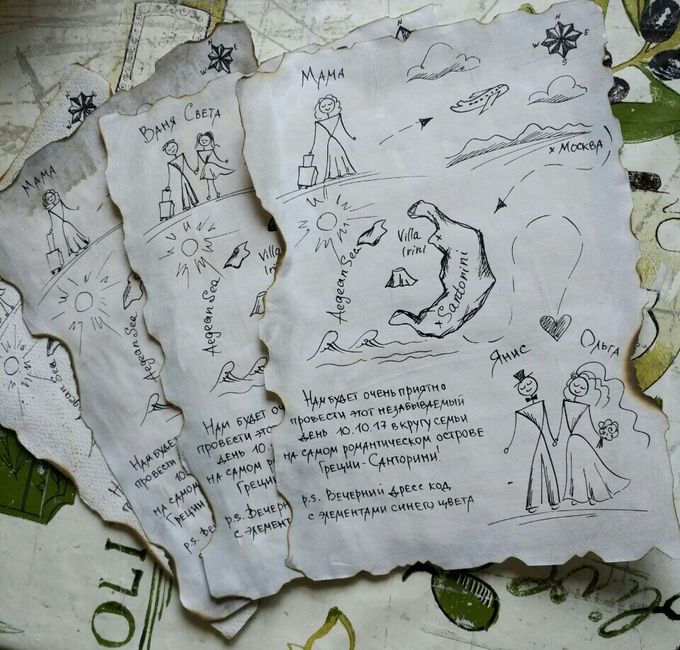 Мама
N
W E
S
× Москва
Villa
Irini
Aegean Sea
Santorini
Янис Ольга
Нам будет очень приятно
провести этот незабываемый
день 10.10.17 в кругу семьи
на самом романтическом острове
Греции-Санторини!
p.s. Вечерний дресс код
с элементами синего цвета
N
W E
S
Ваня Света
Villa
Aegean Sea
Нам будет
провести это
день 10.10
на самом
p.s. Вечерн
с элемент
N
W E
S
Мама
Aegean Sea
Нам будет
провести
на самом
Греции
p.s.
OLI